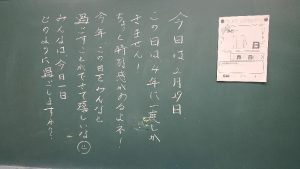 今日は2月29日
この日は4年に一度しか
きません!
ちょと特別感があるよネ!
今年、この日をみんなと
過ごすことができて嬉しいな
みんなは今日一日
どのように過ごしますか?
日